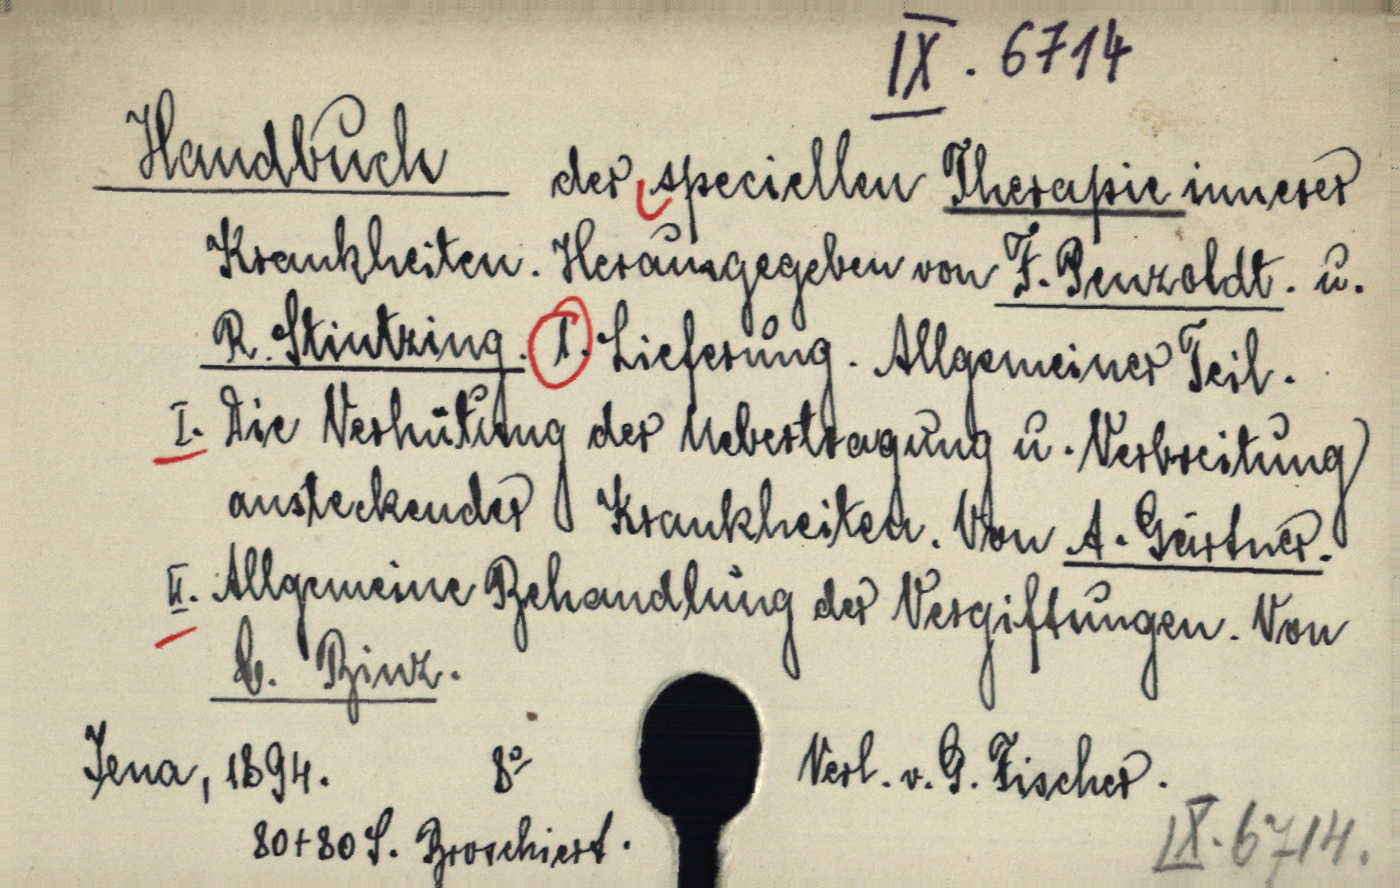 IX. 6714
Handbuch der speciellen Therapie innerer
Krankheiten. Herausgegeben von F. Penzoldt. u.
R. Stintzing. 1. Lieferung. Allgemeiner Teil.
I. Die Verhütung der Uebertragung u. Verbreitung
ansteckender Krankheiten. Von A. Gärtner.
II. Allgemeine Behandlung der Vergiftungen. Von
C. Binz.
Jena, 1894. 8° Verl. v. G. Fischer.
80+80 S. Broschiert.
IX. 6714.